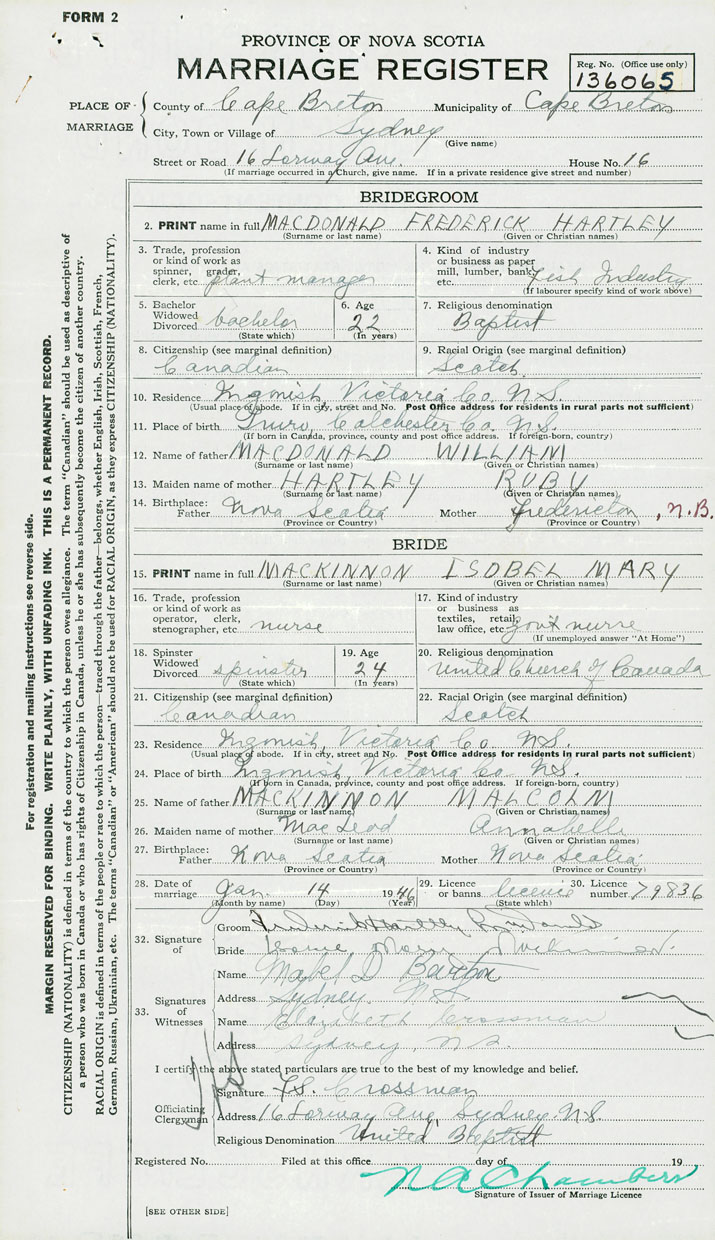 FORM 2
PROVINCE OF NOVA SCOTIA
MARRIAGE REGISTER
Reg. No. (Office use only)
136065
PLACE OF MARRIAGE
County of Cape Breton Municipality of Cape Breton
City, Town or Village of Sydney
(Give name)
Street or Road 16 Lorway Ave. House No. 16
(If marriage occurred in a Church, give name. If in a private residence give street and number)
BRIDEGROOM
2. PRINT name in full MACDONALD FREDERICK HARTLEY
(Surname or last name) (Given or Christian names)
3. Trade, profession or kind of work as spinner, grader, clerk, etc. plant manager
4. Kind of industry or business as paper mill, lumber, bank, etc. Fish Industry
(If labourer specify kind of work above)
5. Bachelor Widowed Divorced bachelor
(State which)
6. Age 22
(In years)
7. Religious denomination
Baptist
8. Citizenship (see marginal definition)
Canadian
9. Racial Origin (see marginal definition)
Scotch
10. Residence Ingonish, Victoria Co. N.S.
(Usual place of abode. If in city, street and No. Post Office address for residents in rural parts not sufficient)
11. Place of birth Truro, Colchester Co. N.S.
(If born in Canada, province, county and post office address. If foreign-born, country)
12. Name of father MACDONALD WILLIAM
(Surname or last name) (Given or Christian names)
13. Maiden name of mother HARTLEY RUBY
(Surname or last name) (Given or Christian names)
14. Birthplace: Father Nova Scotia Mother Fredericton, N.B.
(Province or Country) (Province or Country)
BRIDE
15. PRINT name in full MACKINNON ISOBEL MARY
(Surname or last name) (Given or Christian names)
16. Trade, profession or kind of work as operator, clerk, stenographer, etc. nurse
17. Kind of industry or business as textiles, retail, law office, etc. govt nurse
(If unemployed answer "At Home")
18. Spinster Widowed Divorced spinster
(State which)
19. Age 24
(In years)
20. Religious denomination
United Church of Canada
21. Citizenship (see marginal definition)
Canadian
22. Racial Origin (see marginal definition)
Scotch
23. Residence Ingonish, Victoria Co. N.S.
(Usual place of abode. If in city, street and No. Post Office address for residents in rural parts not sufficient)
24. Place of birth Ingonish, Victoria Co. N.S.
(If born in Canada, province, county and post office address. If foreign-born, country)
25. Name of father MACKINNON MALCOLM
(Surname or last name) (Given or Christian names)
26. Maiden name of mother MacLeod Annabelle
(Surname or last name) (Given or Christian names)
27. Birthplace: Father Nova Scotia Mother Nova Scotia
(Province or Country) (Province or Country)
28. Date of marriage Jan. 14 1946
(Month by name) (Day) (Year)
29. Licence or banns licence
(State which)
30. Licence number 79836
32. Signature of
Groom Frederick Hartley
Bride
33. Signatures of Witnesses
Name Mabel D Barton
Address Sydney N.S.
Name Elizabeth Crossman
Address Sydney, N.S.
I certify the above stated particulars are true to the best of my knowledge and belief.
Officiating Clergyman
Signature Crossman
Address 16 Lorway Ave, Sydney N.S.
Religious Denomination United Baptist
Registered No. Filed at this office day of 19
N A Chambers
Signature of Issuer of Marriage Licence
[SEE OTHER SIDE]
For registration and mailing instructions see reverse side.
MARGIN RESERVED FOR BINDING. WRITE PLAINLY, WITH UNFADING INK. THIS IS A PERMANENT RECORD.
CITIZENSHIP (NATIONALITY) is defined in terms of the country to which the person owes allegiance. The term "Canadian" should be used as descriptive of
a person who was born in Canada or who has rights of Citizenship in Canada, unless he or she has subsequently become the citizen of another country.
RACIAL ORIGIN is defined in terms of the people or race to which the person—traced through the father—belongs, whether English, Irish, Scottish, French,
German, Russian, Ukrainian, etc. The terms "Canadian" or "American" should not be used for RACIAL ORIGIN, as they express CITIZENSHIP (NATIONALITY).